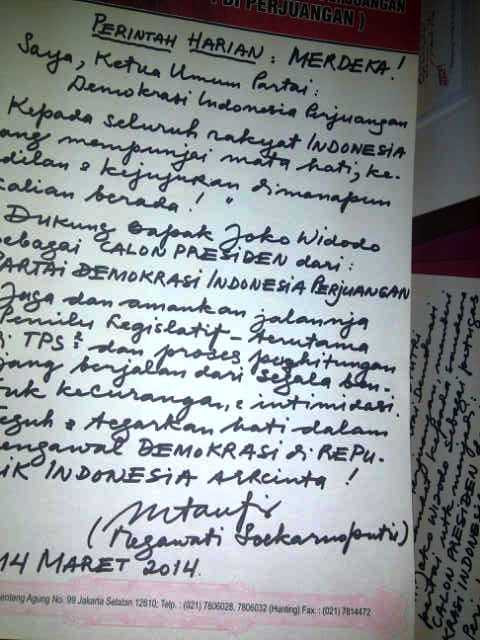 DI PERJUANGAN )
PERINTAH HARIAN : MERDEKA !
Saya, Ketua Umum Partai :
Demokrasi Indonesia Perjuangan
Kepada seluruh rakyat INDONESIA
ang mempunjai mata hati, ke-
dilan & kejujuran dimanapun
kalian berada ! "
Dukung Bapak Joko Widodo
ebagai CALON PRESIDEN dari :
PARTAI DEMOKRASI INDONESIA PERJUANGAN
Juga dan amankan jalannja
Pemilu Legislatif - terutama
di TPS² dan proses penghitungan
jang berjalan dari segala ben-
tuk kecurangan, & intimidasi.
Teguh & tegarkan hati dalam
engawal DEMOKRASI di REPU-
LIK INDONESIA tercinta !
(Megawati Soekarnoputri)
14 MARET 2014.
enteng Agung No. 99 Jakarta Selatan 12610; Telp. : (021) 7806028, 7806032 (Hunting) Fax. : (021) 7814472
Joko Widodo sebagai petugas
partai utk menjadi
CALON PRESIDEN
RASI INDONESIA